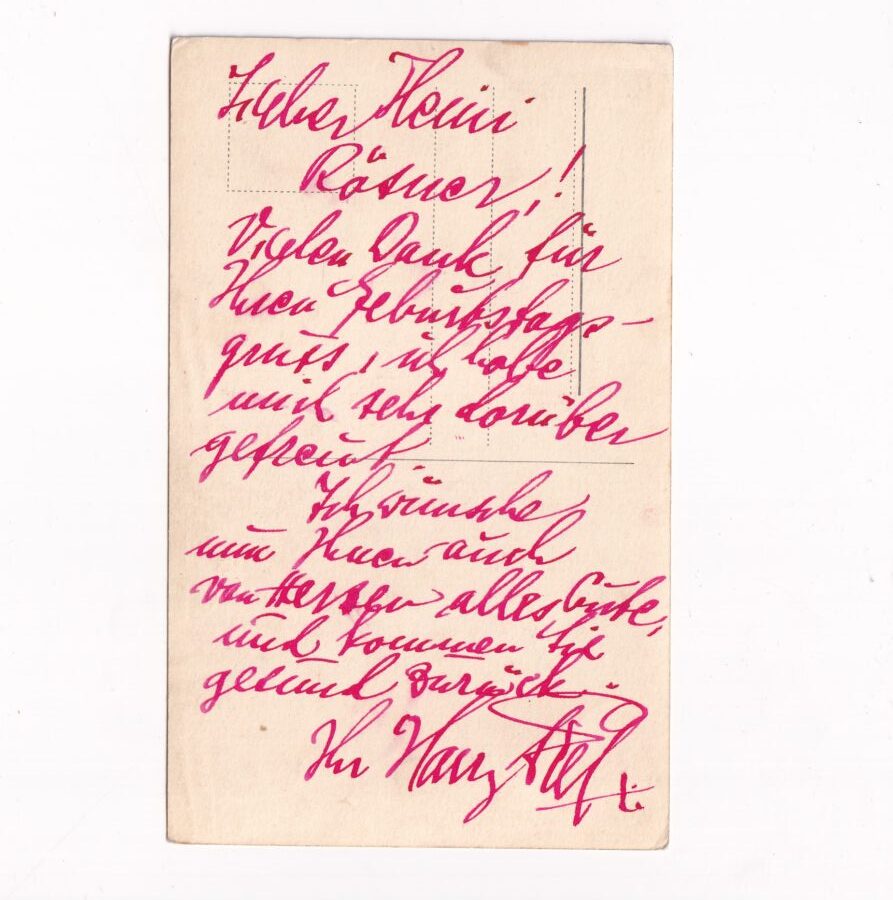 Lieber Heini
Rösner,!
Vielen Dank für
Ihren Geburtstags-
gruss, ich habe
mich sehr darüber
gefreut
Ich wünsche
nun Ihnen auch
von Herzen alles Gute,
und kommen Sie
gesund zurück.
Ihr Harry